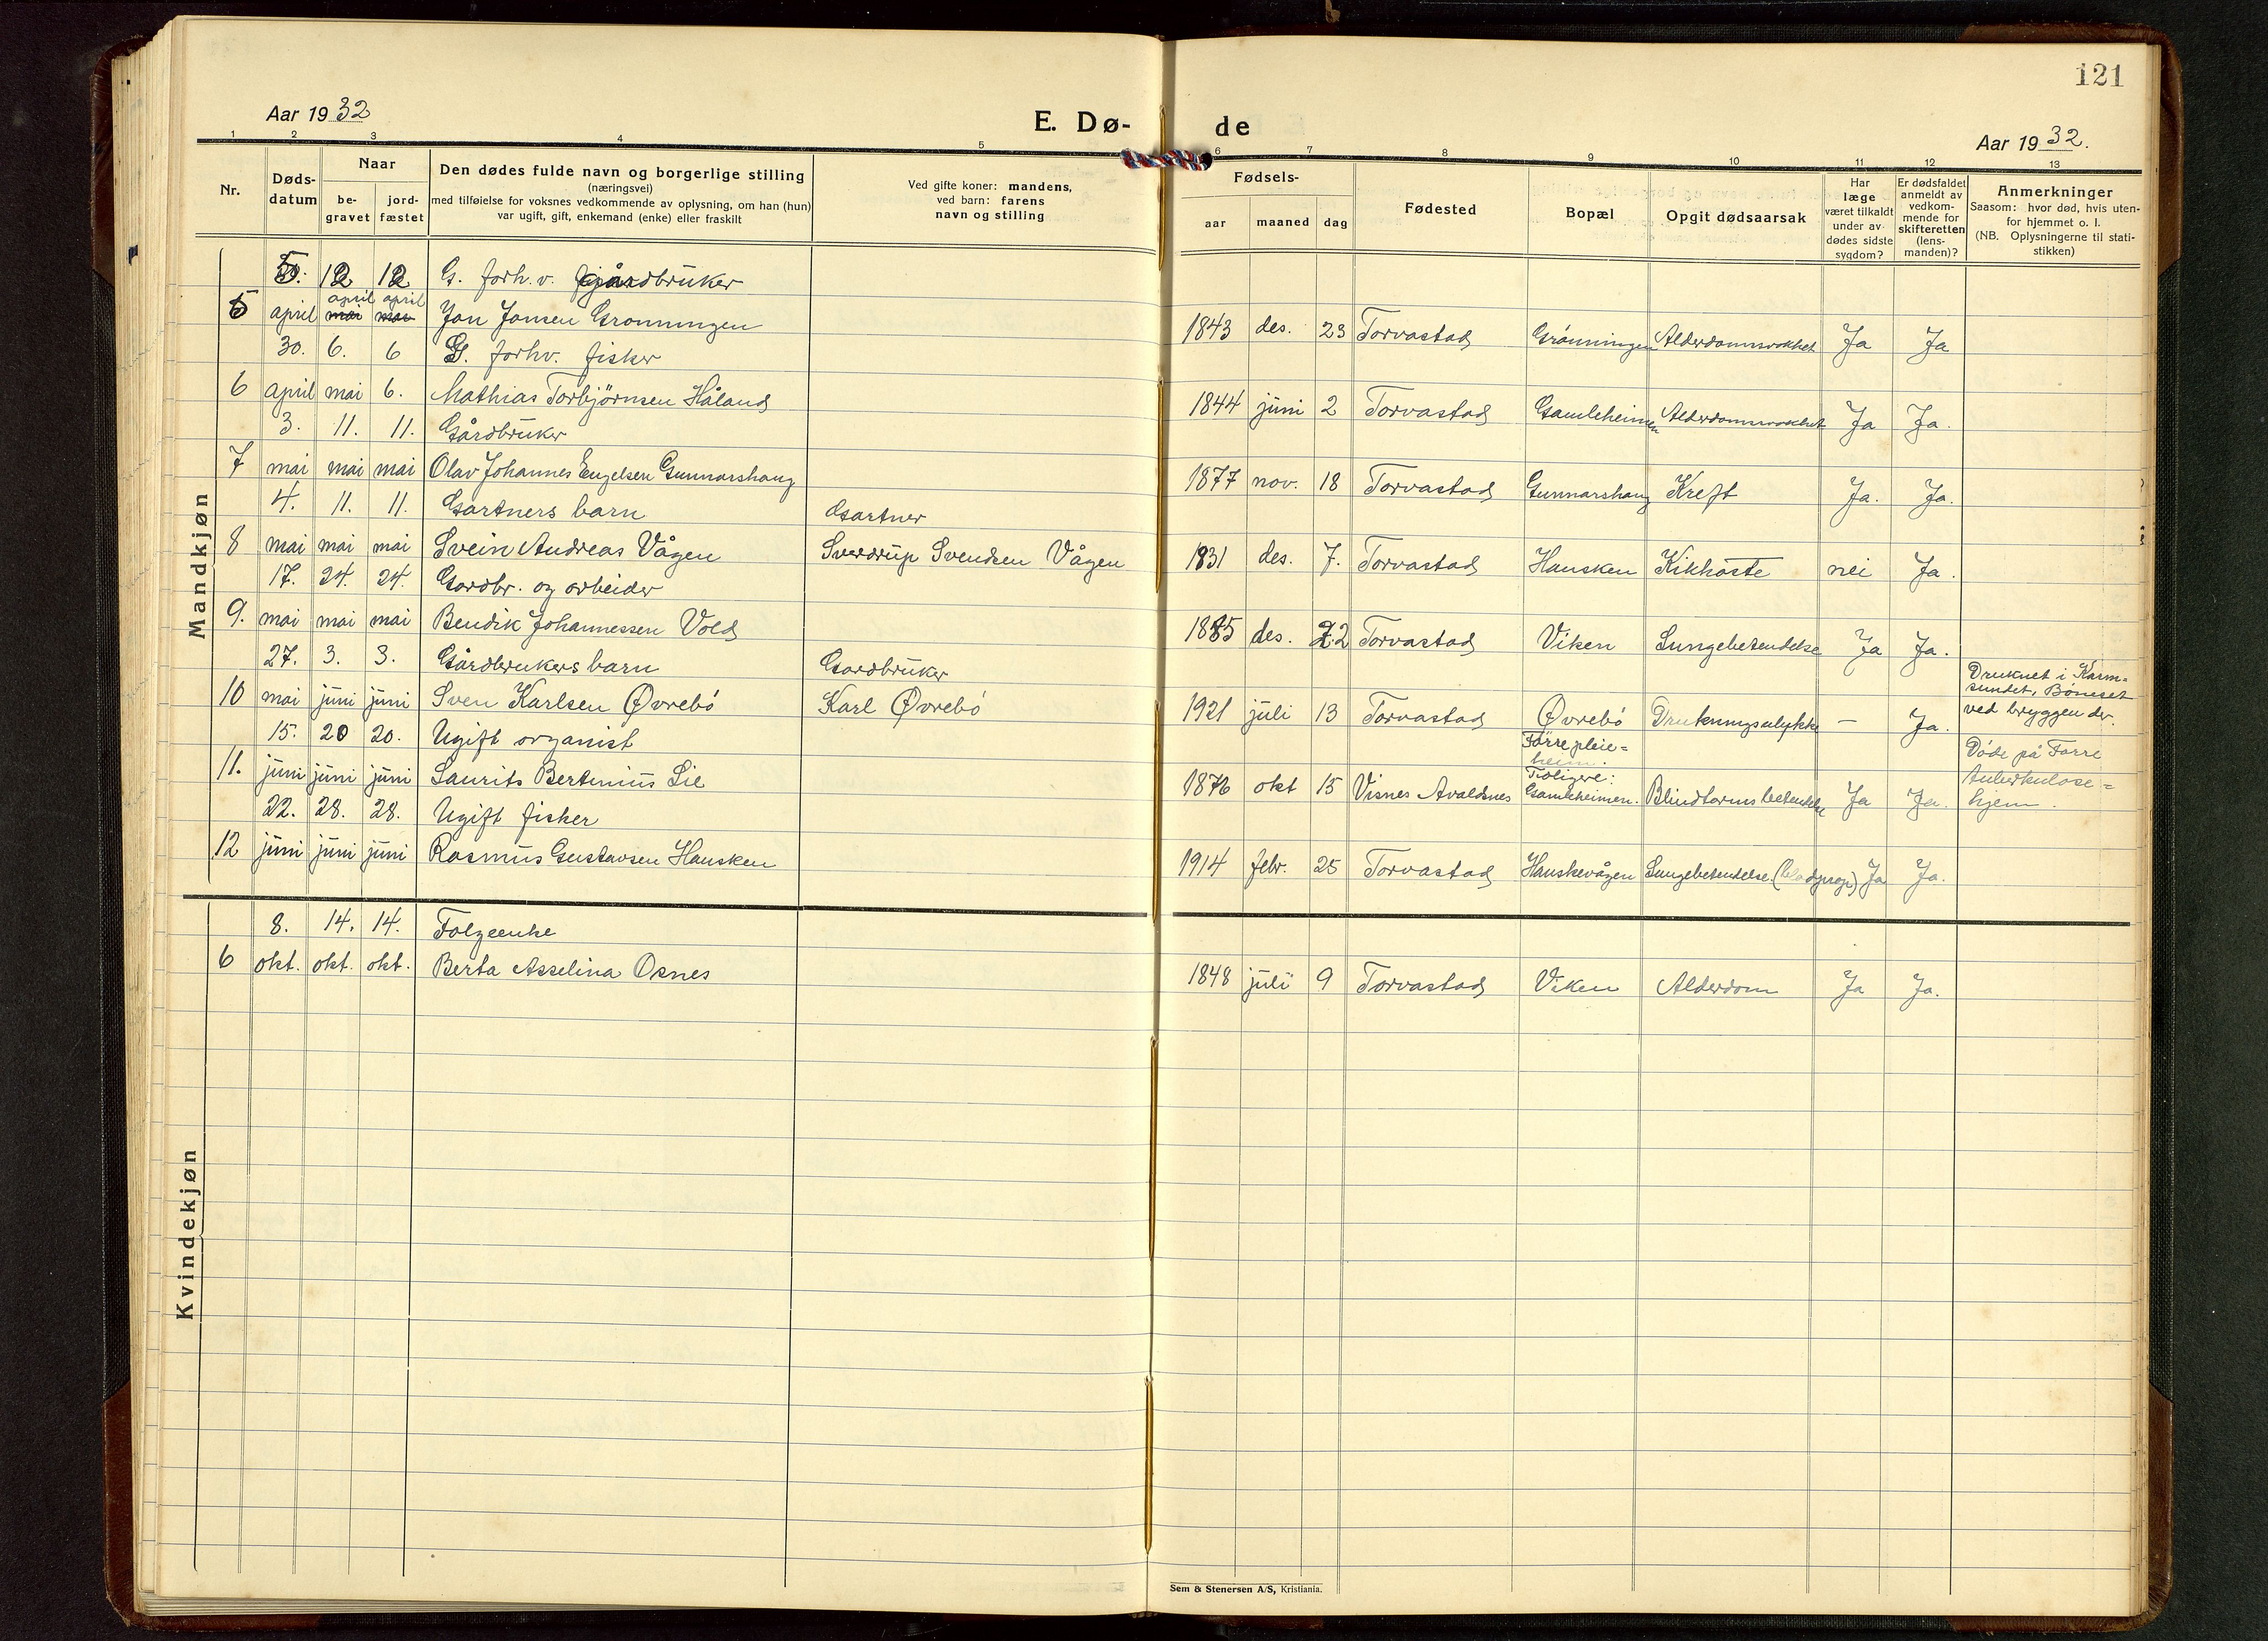 121
Aar 1932
E. Dø-
de
Aar 1932.
1 2 3 4 5 6 7 8 9 10 11 12 13
Nr.
Døds-
datum
Naar
be-
gravet
jord-
fæstet
Den dødes fulde navn og borgerlige stilling
(næringsvei)
med tilføielse for voksnes vedkommende av oplysning, om han (hun)
var ugift, gift, enkemand (enke) eller fraskilt
Ved gifte koner: mandens,
ved barn: farens
navn og stilling
Fødsels-
aar maaned dag
Fødested
Bopæl
Opgit dødsaarsak
Har
læge
været tilkaldt
under av-
dødes sidste
sygdom?
Er dødsfaldet
anmeldt av
vedkom-
mende for
skifteretten
(lens-
manden)?
Anmerkninger
Saasom: hvor død, hvis uten-
for hjemmet o. l.
(NB. Oplysningerne til stati-
stikken)
Mandkjøn
5. 12 12 G. forh.v. gårdbruker
april april
5 april mai mai Jon Jonsen Grønningen 1843 des. 23 Torvastad Grønningen Alderdomsvakhet Ja Ja
30. 6. 6 G. forhv. fisker
6 april mai 6. Mathias Torbjörnsen Håland 1844 juni 2 Torvastad Gamleheimen Alderdomsvakhet Ja Ja.
3. 11. 11. Gårdbruker
7 mai mai mai Olav Johannes Engelsen Gunnarshaug 1877 nov. 18 Torvastad Gunnarshaug Kreft Ja. Ja.
4. 11. 11. Gartners barn Gartner
8 mai mai mai Svein Andreas Vågen Sverdrup Svendsen Vågen 1931 des. 7. Torvastad Hausken Kikhöste nei Ja.
17. 24. 24. Gardbr. og arbeider
9. mai mai mai Bendik Johannessen Vold 1885 des. 22 Torvastad Viken Lungebetendelse Ja Ja.
27. 3. 3. Gårdbrukers barn Gardbruker
10 mai juni juni Sven Karlsen Øvrebö Karl Øvrebö 1921 juli 13 Torvastad Øvrebö Drukningsulykke — Ja.
Druknet i Karm=
sundet, Böneset
ved bryggen der.
15. 20 20. Ugift organist
11. juni juni juni Laurits Bertinius Lie 1876 okt 15 Visnes Avaldsnes
Förre pleie=
heim.
Tidligere:
Gamleheimen.
Blindtarmsbetendelse Ja Ja.
Döde på Förre
tuberkulose=
hjem.
22. 28. 28. Ugift fisker
12 juni juni juni Rasmus Gustavsen Hausken 1914 febr. 25 Torvastad Hauskevågen Lungebetendelse (blodprop) Ja Ja.
Kvindekjøn
8. 14. 14. Folgeenke
6 okt. okt. okt. Berta Asselina Osnes 1848 juli 9 Torvastad Viken Alderdom Ja Ja.
Sem & Stenersen A/S, Kristiania.